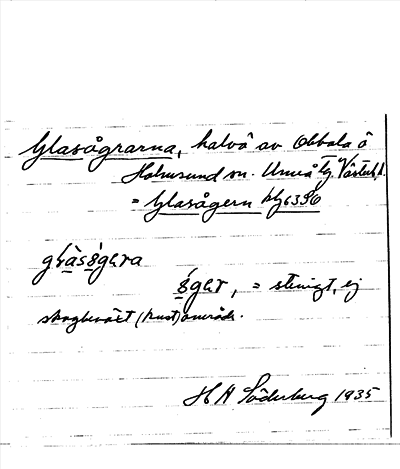 Glasågrarna, halvö av Obbola ö
Holmsund sn. Umeå tg. Västerb.
= Glasågern
gɬàsågəra
ågər, = stenigt, ej
skogbeväxt (kust)område.
H A Söderberg 1935